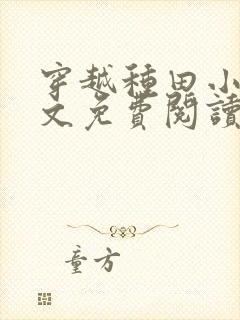 穿越種田小
文免費閱讀
童方